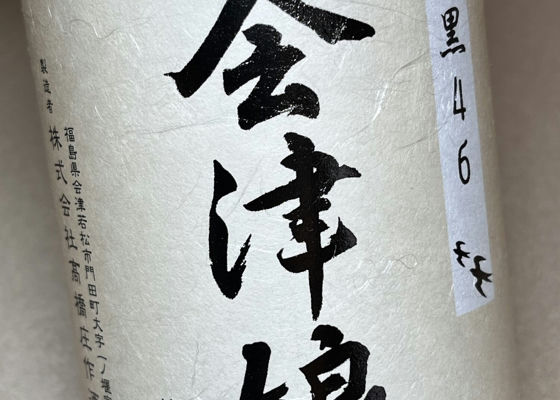 黒46
会津錦
製造者
福島県会津若松市門田町大字一ノ堰
株式会社高橋庄作